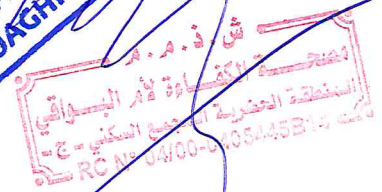 DAGHI
ش.ذ.م.م
مصحة الكفاءة لأم البواقي
المنطقة الحضرية التجمع السكني - ج -
RC N° 04/00-0405445B14